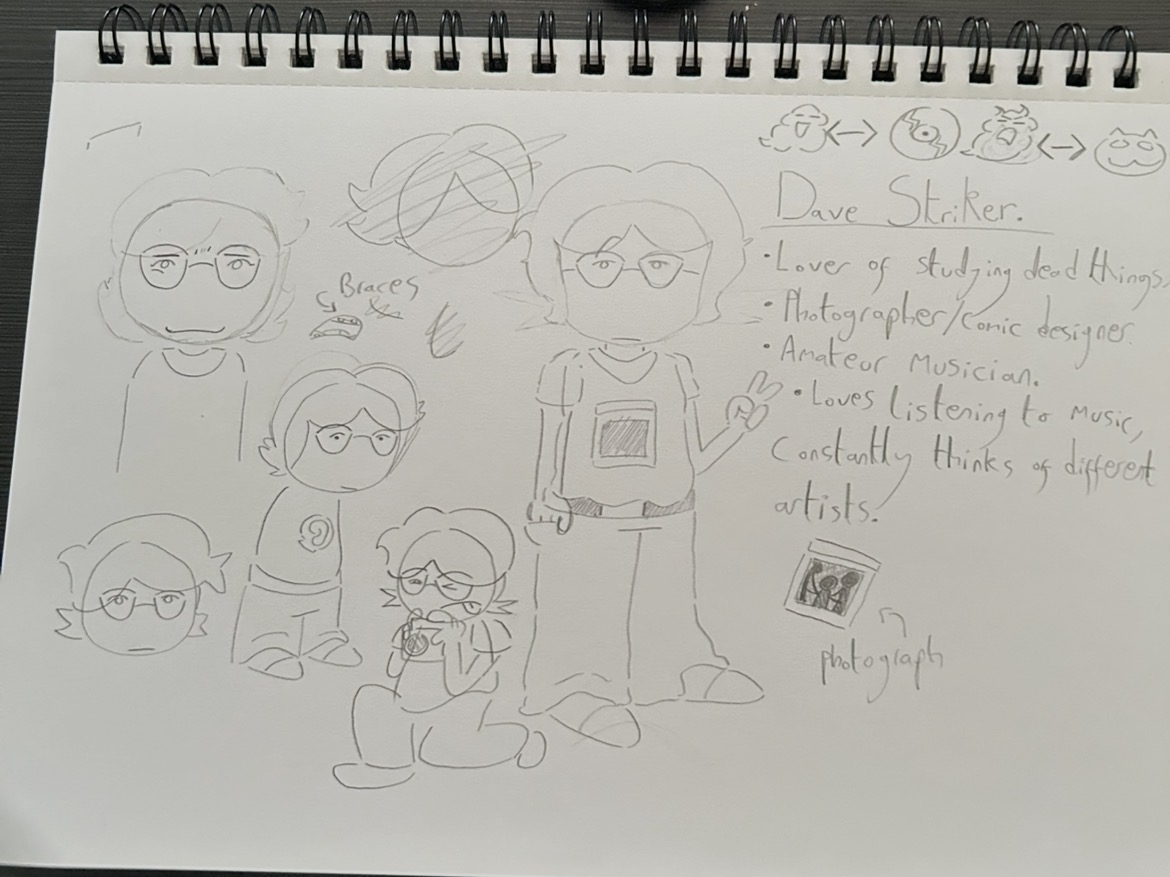 Dave Striker.
• Lover of studying dead things.
• Photographer/Comic designer.
• Amateur Musician.
• Loves listening to Music,
Constantly thinks of different
artists.
Braces
photograph